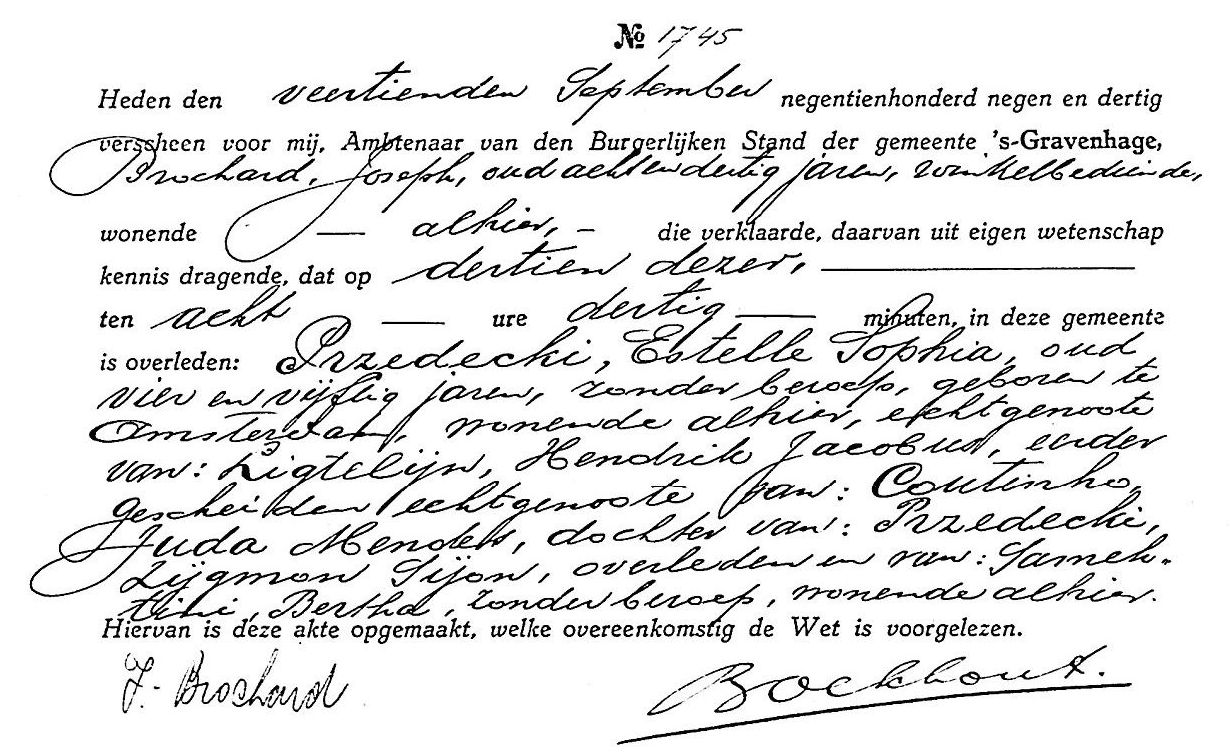 № 1745
Heden den veertienden September negentienhonderd negen en dertig
verscheen voor mij, Ambtenaar van den Burgerlijken Stand der gemeente 's-Gravenhage,
Brochard, Joseph, oud achtendertig jaren, winkelbediende,
wonende — alhier, - die verklaarde, daarvan uit eigen wetenschap
kennis dragende, dat op dertien dezer, —
ten acht — ure dertig — minuten, in deze gemeente
is overleden: Przedecki, Estelle Sophia, oud
vier en vijftig jaren, zonder beroep, geboren te
Amsterdam, wonende alhier, echtgenoote
van: Ligtelijn, Hendrik Jacobus, eerder
gescheiden echtgenoote van: Coutinho,
Juda Mendes, dochter van: Przedecki,
Zijgmon Sijon, overleden en van: Sameh-
tini, Bertha, zonder beroep, wonende alhier.
Hiervan is deze akte opgemaakt, welke overeenkomstig de Wet is voorgelezen.
J. Brochard Bockhout.